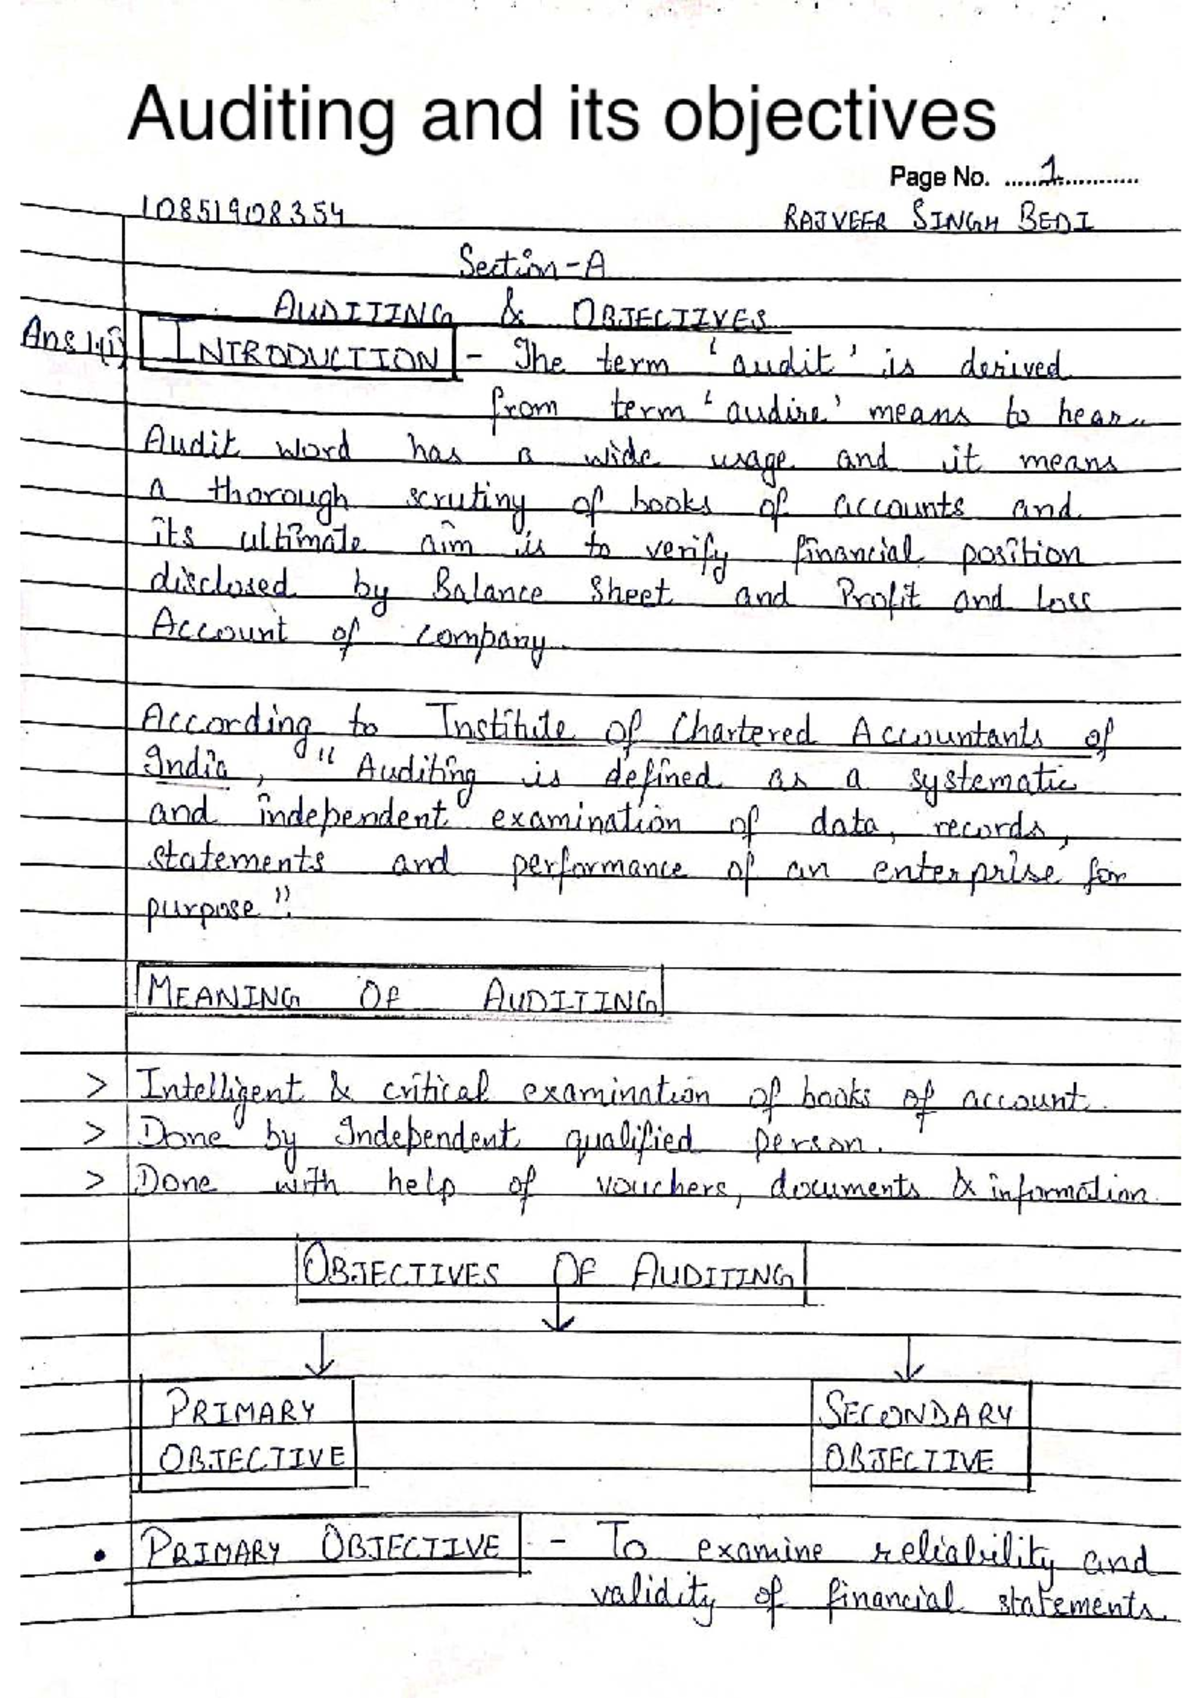 Auditing and its objectives
Page No. ......1............
10851908354 RAJVEER SINGH BEDI
Section-A
AUDITING & OBJECTIVES
Ans 1.(i) INTRODUCTION - The term 'audit' is derived
from term 'audire' means to hear.
Audit word has a wide usage and it means
a thorough scrutiny of books of accounts and
its ultimate aim is to verify financial position
disclosed by Balance Sheet and Profit and Loss
Account of company.
According to Institute of Chartered Accountants of
India, "Auditing is defined as a systematic
and independent examination of data, records,
statements and performance of an enterprise for
purpose".
MEANING OF AUDITING
> Intelligent & critical examination of books of account.
> Done by Independent qualified person.
> Done with help of vouchers, documents & information.
OBJECTIVES OF AUDITING
PRIMARY OBJECTIVE
SECONDARY OBJECTIVE
• PRIMARY OBJECTIVE - To examine reliability and
validity of financial statements.